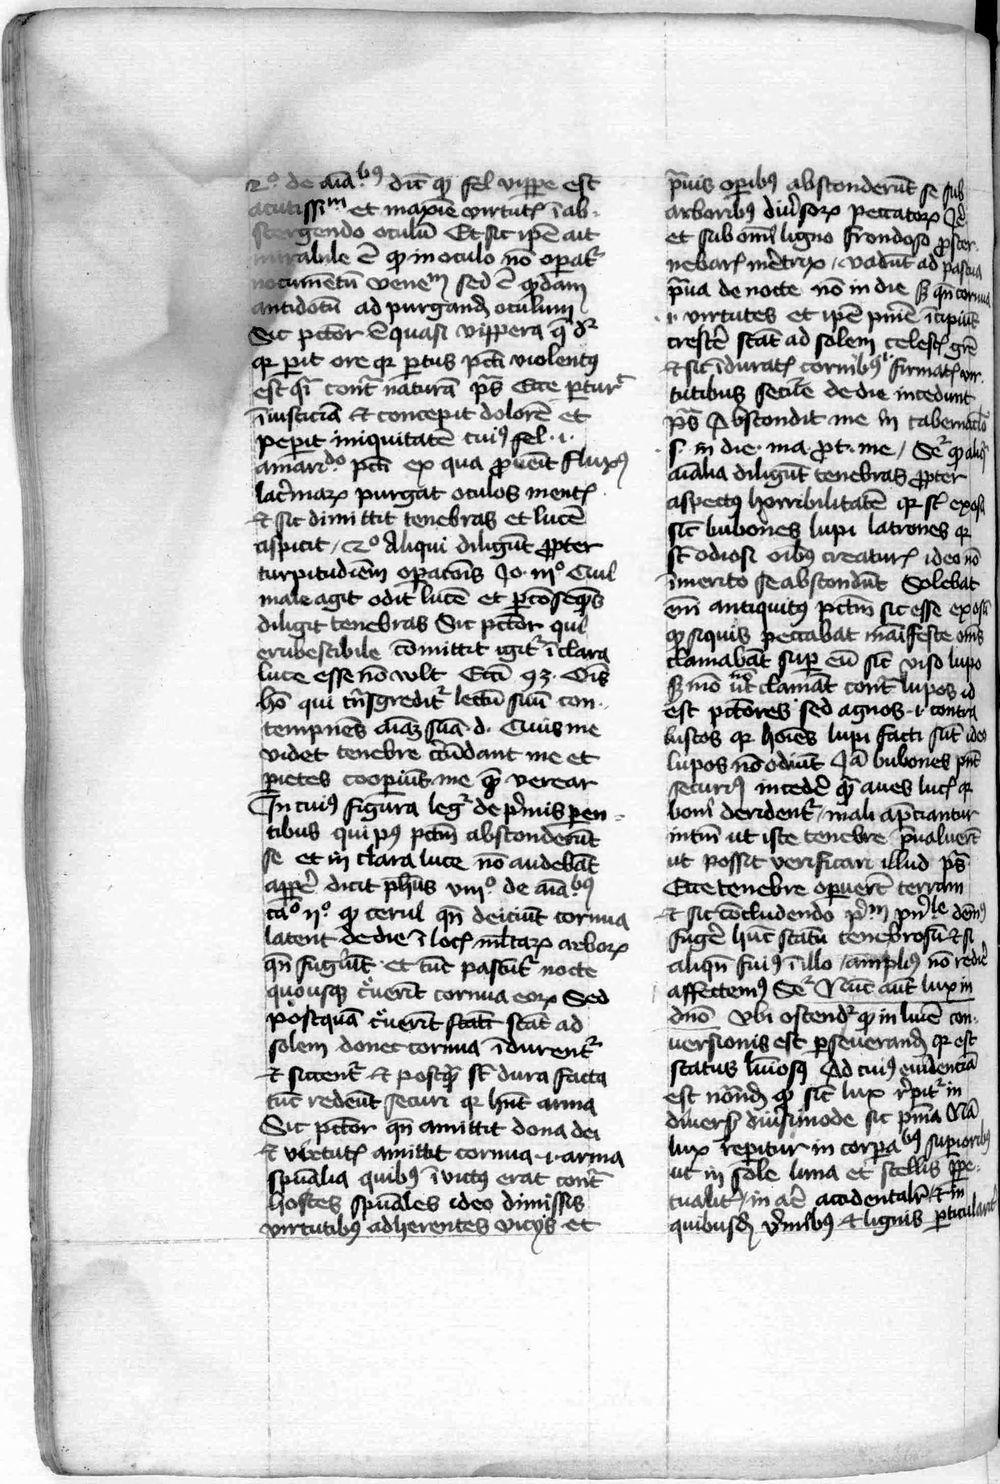 2º de aīabꝰ dic̄ ꝙ fel vipꝑe est
acutissim et maxīe virtut ī ab-
stergendo oculū Et sic ipē ait
mirabile ē ꝙ in oculo nō opat
nocumentū venem sed ē ꝙddam
antidotū ad purgand oculum
Sic pctor ē quasi vippera q dr
qr pit ore qr ptus pcti violentꝰ
est qi cont naturā ps Ecce pturit
īiusticiā et concepit dolorē et
peperit iniquitatē cuiꝰ fel .i.
amaritdo pcti ex qua ꝓuēit fluxꝰ
lacrimaꝝ purgat oculos ment
et sic dimittit tenebras et lucē
aspicit / 2º Aliqui diligūt ꝓpter
turpitudiēm opacōis Jo. iijº Qui
male agit odit lucē et ꝑ cōseq̄s
diligit tenebras Sic pctor qui
erubescibile cōmittit igit ī clara
luce esse nō vult Ecci 23. Ois
hō qui tn̄sgredit lectū suū con-
tempnēs aīaꝫ suā .d. Quis me
videt tenebre circūdant me et
pietes coopiūt me quē verear
In cuiꝰ figura legr de pmis pen-
tibus qui pꝰ pctm absconderūt
se et in clara luce nō audebāt
appere dicit phūs viijº de aīabꝰ
caº ijº ꝙ cerui qn deiciūt cornua
latent de die ī loc mltaꝝ arboꝝ
qn fugiūt et tūc pascūt nocte
quousqꝫ creuerīt cornua eoꝝ Sed
postquā creuerīt statī stāt ad
solem donec cornua īdurent
et siccent et postq̄ st dura facta
tūc redeūt securi qr hnt arma
Sic pctor qn amittit dona dei
et virtut amittit cornua .i. arma
spūalia quibꝰ īvictꝰ erat cont
hostes spūales ideo dimissis
virtutibꝰ adherentes vicijs et
prauis opibꝰ absconderūt se sub
arboribꝰ diūsoꝝ peccatoꝝ Je
et sub omi ligno frondoso ꝓster-
nebaris meretrix / vadūt ad pascua
praua de nocte nō in die sꝫ qn cornua
.i. virtutes et ipē pniē īcipiūt
crescere stāt ad solem celest grē
et sic īdurat cornibꝰ firmat vir-
tutibus secūe de die incedunt
ps Abscondit me in tabernaclo
s. in die ma. ꝓt. me / Sec ꝙ aliq
aīalia diligūt tenebras ꝓpter
aspectꝰ horribilitatē qr st exosa
sic bubones lupi latrones qr
st odiosi oībꝰ creatur ideo nō
īmerito se abscondūt Solebat
em antiquitꝰ pctm sic esse exosū
ꝙ siquis peccabat maīfeste oms
clamabāt sup eū sic viso lupo
sꝫ mō nūc clamāt cont lupos id
est pctores sed agnos .i. contra
iustos qr hoīes lupi facti sūt ideo
lupos nō odiūt Jā bubones pnt
securiꝰ incede q̄ aues luc qr
boni derident / mali apciantur
intm ut iste tenebre pualuert
ut possit verificari illud ps
Ecce tenebre opuert terram
et sic cōcludendo pm pnle demꝰ
fugere hūc statū tenebrosū et si
aliqn fuiꝰ ī illo / ampliꝰ nō redire
affectemꝰ Sec Nūc aūt lux in
dno Ubi ostendr ꝙ in lucē con-
versionis est pseuerand qr est
status lucīosꝰ Ad cuiꝰ euidenciā
est notand ꝙ sic lux reperit in
diuers diūsimode sic pnia Nā
lux reperitur in corpabꝰ superioribꝰ
ut in sole luna et stellis ppe-
tualit / in aere accidentalr et in
quibusd vermibꝰ et lignis pticularit